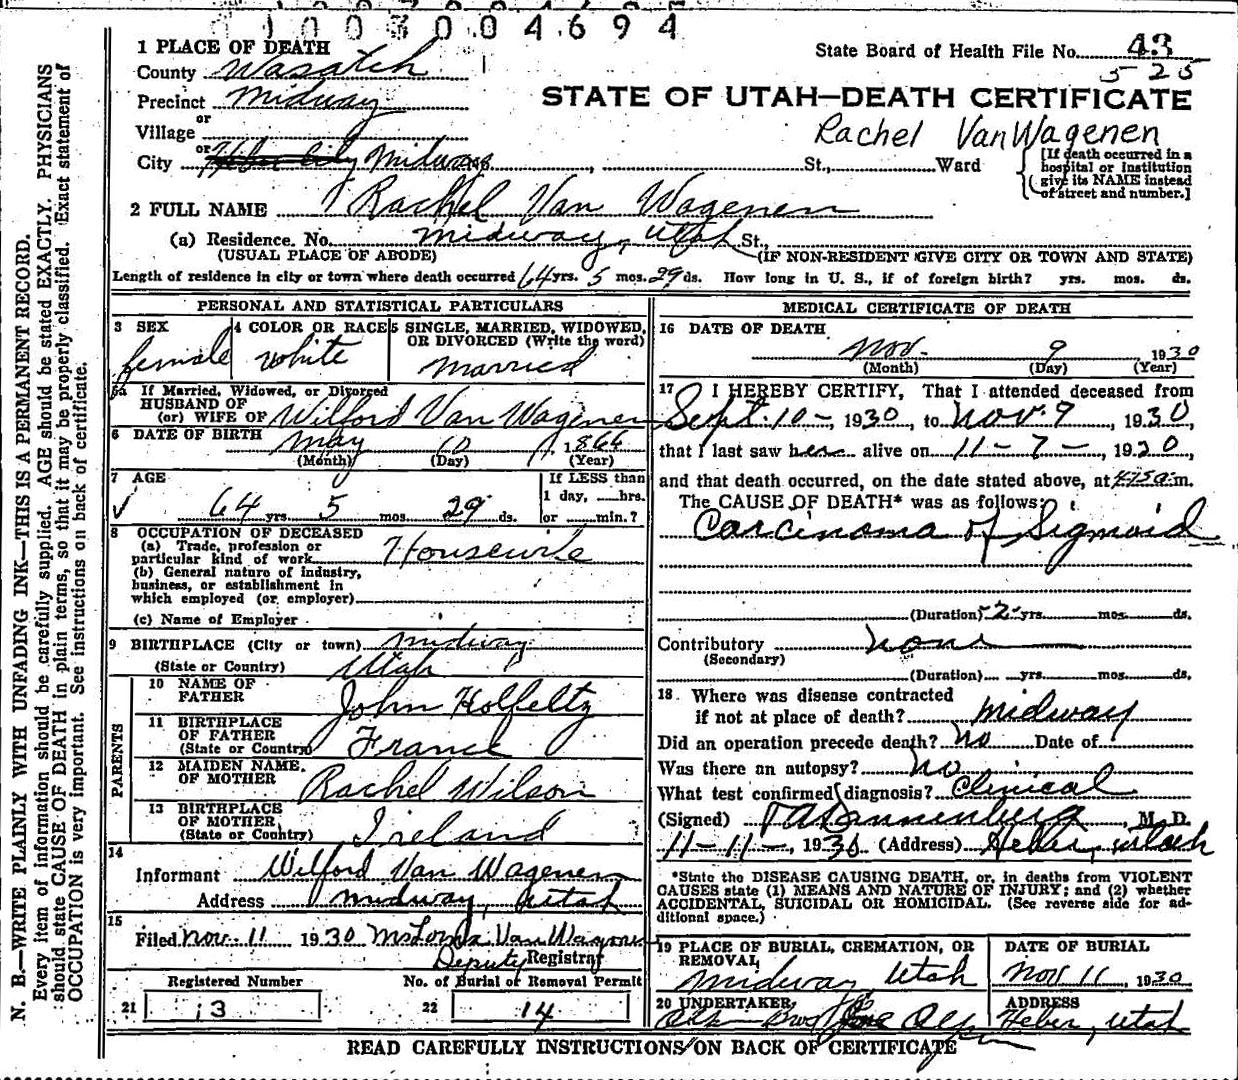 1003004694
1 PLACE OF DEATH
State Board of Health File No. 43
County Wasatch
5-25
Precinct Midway
STATE OF UTAH—DEATH CERTIFICATE
or
Village
Rachel VanWagenen
or
City Heber City Midway St., Ward
[If death occurred in a hospital or institution give its NAME instead of street and number.]
2 FULL NAME Rachel Van Wagenen
(a) Residence. No. Midway, Utah St.,
(USUAL PLACE OF ABODE) (IF NON-RESIDENT GIVE CITY OR TOWN AND STATE)
Length of residence in city or town where death occurred 64 yrs. 5 mos. 29 ds. How long in U. S., if of foreign birth? yrs. mos. ds.
PERSONAL AND STATISTICAL PARTICULARS
3 SEX 4 COLOR OR RACE 5 SINGLE, MARRIED, WIDOWED, OR DIVORCED (Write the word)
female white Married
5a If Married, Widowed, or Divorced
HUSBAND OF
(or) WIFE OF Wilford Van Wagenen
6 DATE OF BIRTH May 10, 1866
(Month) (Day) (Year)
7 AGE If LESS than
64 yrs. 5 mos. 29 ds. 1 day, hrs.
or min.?
8 OCCUPATION OF DECEASED
(a) Trade, profession or
particular kind of work Housewife
(b) General nature of industry,
business, or establishment in
which employed (or employer)
(c) Name of Employer
9 BIRTHPLACE (City or town) Midway
(State or Country) Utah
PARENTS
10 NAME OF
FATHER John Holfeltz
11 BIRTHPLACE
OF FATHER
(State or Country) France
12 MAIDEN NAME
OF MOTHER Rachel Wilson
13 BIRTHPLACE
OF MOTHER
(State or Country) Ireland
14
Informant Wilford Van Wagenen
Address Midway, Utah
15
Filed Nov. 11 1930 Van Wagenen
Deputy Registrar
Registered Number No. of Burial or Removal Permit
21 13 22 14
MEDICAL CERTIFICATE OF DEATH
16 DATE OF DEATH
Nov. 9 1930
(Month) (Day) (Year)
17 I HEREBY CERTIFY, That I attended deceased from
Sept. 10-, 1930, to Nov. 9, 1930,
that I last saw her alive on 11-7-, 1930,
and that death occurred, on the date stated above, at m.
The CAUSE OF DEATH* was as follows:
Carcinoma of Sigmoid
(Duration) 2 yrs. mos. ds.
Contributory none
(Secondary)
(Duration) yrs. mos. ds.
18 Where was disease contracted
if not at place of death? Midway
Did an operation precede death? No Date of
Was there an autopsy? No
What test confirmed diagnosis? Clinical
(Signed) , M. D.
11-11-, 1930 (Address) Heber, Utah
*State the DISEASE CAUSING DEATH, or, in deaths from VIOLENT
CAUSES state (1) MEANS AND NATURE OF INJURY; and (2) whether
ACCIDENTAL, SUICIDAL OR HOMICIDAL. (See reverse side for ad-
ditional space.)
19 PLACE OF BURIAL, CREMATION, OR DATE OF BURIAL
REMOVAL
Midway Utah Nov 11, 1930
20 UNDERTAKER, ADDRESS
Heber, Utah
READ CAREFULLY INSTRUCTIONS ON BACK OF CERTIFICATE
N. B.—WRITE PLAINLY WITH UNFADING INK—THIS IS A PERMANENT RECORD.
Every item of information should be carefully supplied. AGE should be stated EXACTLY. PHYSICIANS
should state CAUSE OF DEATH in plain terms, so that it may be properly classified. Exact statement of
OCCUPATION is very important. See instructions on back of certificate.